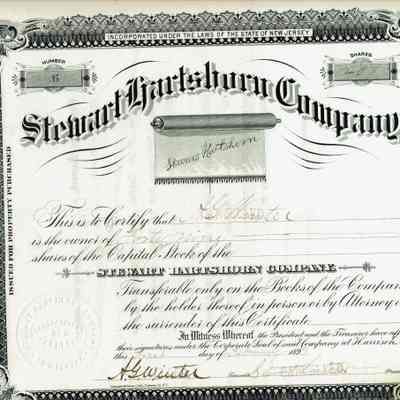 INCORPORATED UNDER THE LAWS OF THE STATE OF NEW JERSEY.
NUMBER
SHARES
Stewart Hartshorn Company
Stewart Hartshorn
ISSUED FOR PROPERTY PURCHASED
This is to Certify that A G Winter
is the owner of
shares of the Capital Stock of the
STEWART HARTSHORN COMPANY.
Transferable only on the Books of the Company
by the holder thereof in person or by Attorney o
the surrender of this Certificate.
In Witness Whereof, the President and the Treasurer have aff
their signatures under the Corporate Seal of said Company at Harrison
this day of 189
A G Winter